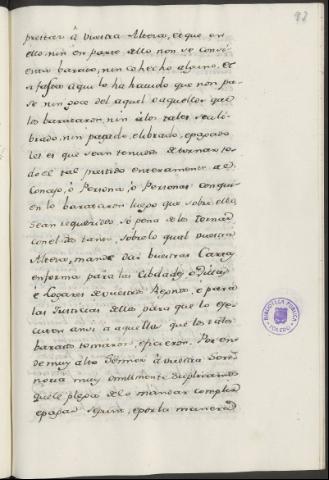 92
prestar á Vuestra Alteza, et que en
ello nin en parte dello non se consi
barato, nin cohecho alguno, et
si fasta aqui lo ha havido que non pa
se nin goce del aquel o aquellos que
los barataron, nin á los tales sea li
brado, nin pagado, e librado, e pagado
les es que sean tenudos de tornar to
do el tal partido enteramente al
Concejo, ó Persona, ó Personas con qui
en lo barataron luego que sobre ello
sean requeridos só pena de los tornar
con el dos tanto, sobre lo qual Vuestra
Alteza, mande dár vuestras Cartas
en forma para las Cibdades, é Villas
é Logares de vuestros Regnos, e para
las Justicias dellos para que lo ese
cuten ansi á aquellos que los tales
baratos tomaron, e ficieron. Por en
de muy alto Señor á vuestra Seño
ria muy omilmente suplicamos
que le plega de lo mandar complir
e pagar segunt, e por la manera
BIBLIOTECA PUBLICA
TOLEDO